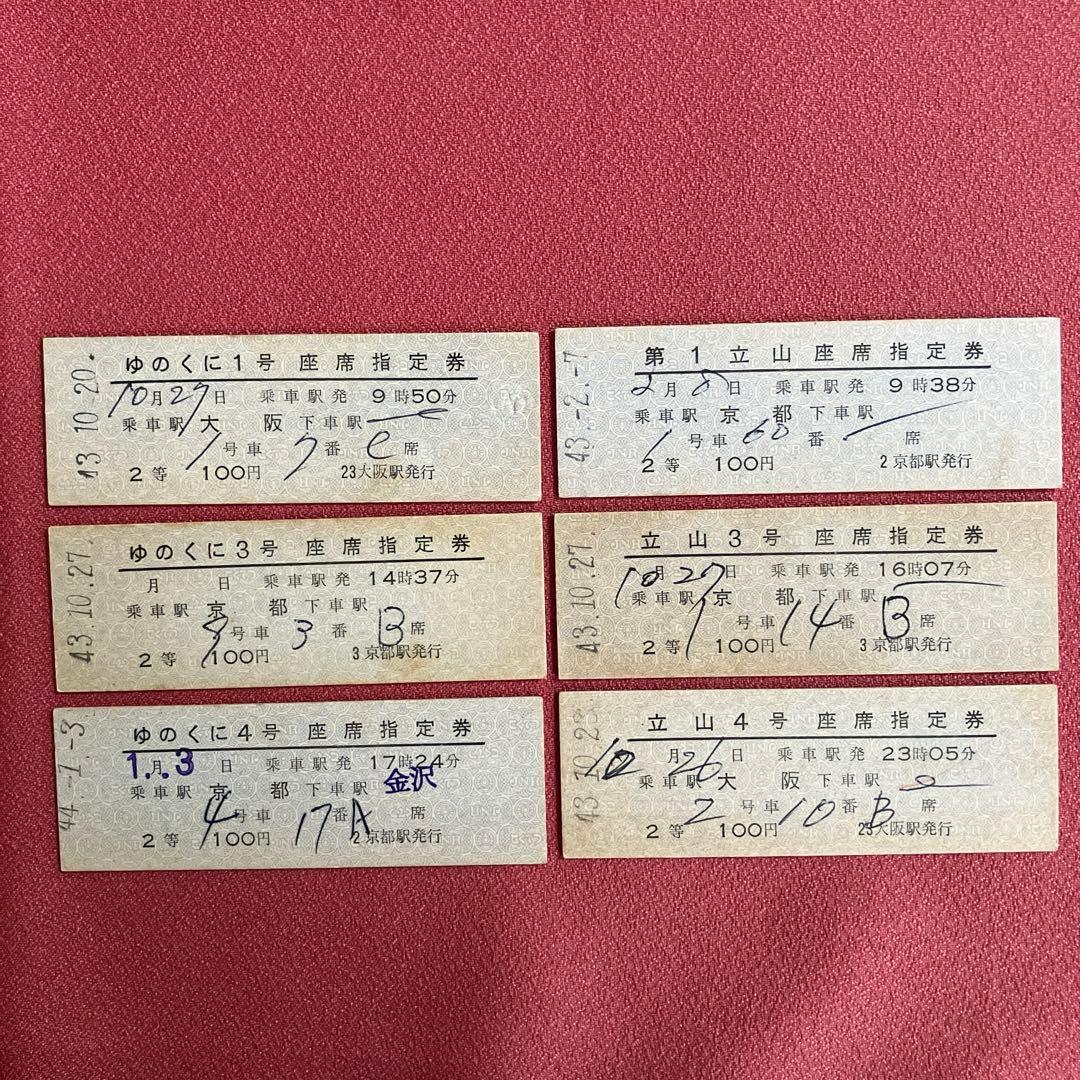 43.10.20.
ゆのくに1号 座席指定券
10月27日 乗車駅発 9時50分
乗車駅 大阪 下車駅
1号車 7番 C席
2等 100円 23大阪駅発行
43.-2.-7
第1立山座席指定券
2月8日 乗車駅発 9時38分
乗車駅 京都 下車駅
1号車 60番 席
2等 100円 2京都駅発行
43.10.27.
ゆのくに3号 座席指定券
月 日 乗車駅発 14時37分
乗車駅 京都 下車駅
号車 3番 B席
2等 100円 3京都駅発行
43.10.27.
立山3号 座席指定券
10月27日 乗車駅発 16時07分
乗車駅 京都 下車駅
1号車 14番 B席
2等 100円 3京都駅発行
44.-1.-3
ゆのくに4号 座席指定券
1月3日 乗車駅発 17時24分
乗車駅 京都 下車駅 金沢
4号車 17番 A席
2等 100円 2京都駅発行
43.10.23
立山4号 座席指定券
10月26日 乗車駅発 23時05分
乗車駅 大阪 下車駅
2号車 10番 B席
2等 100円 23大阪駅発行